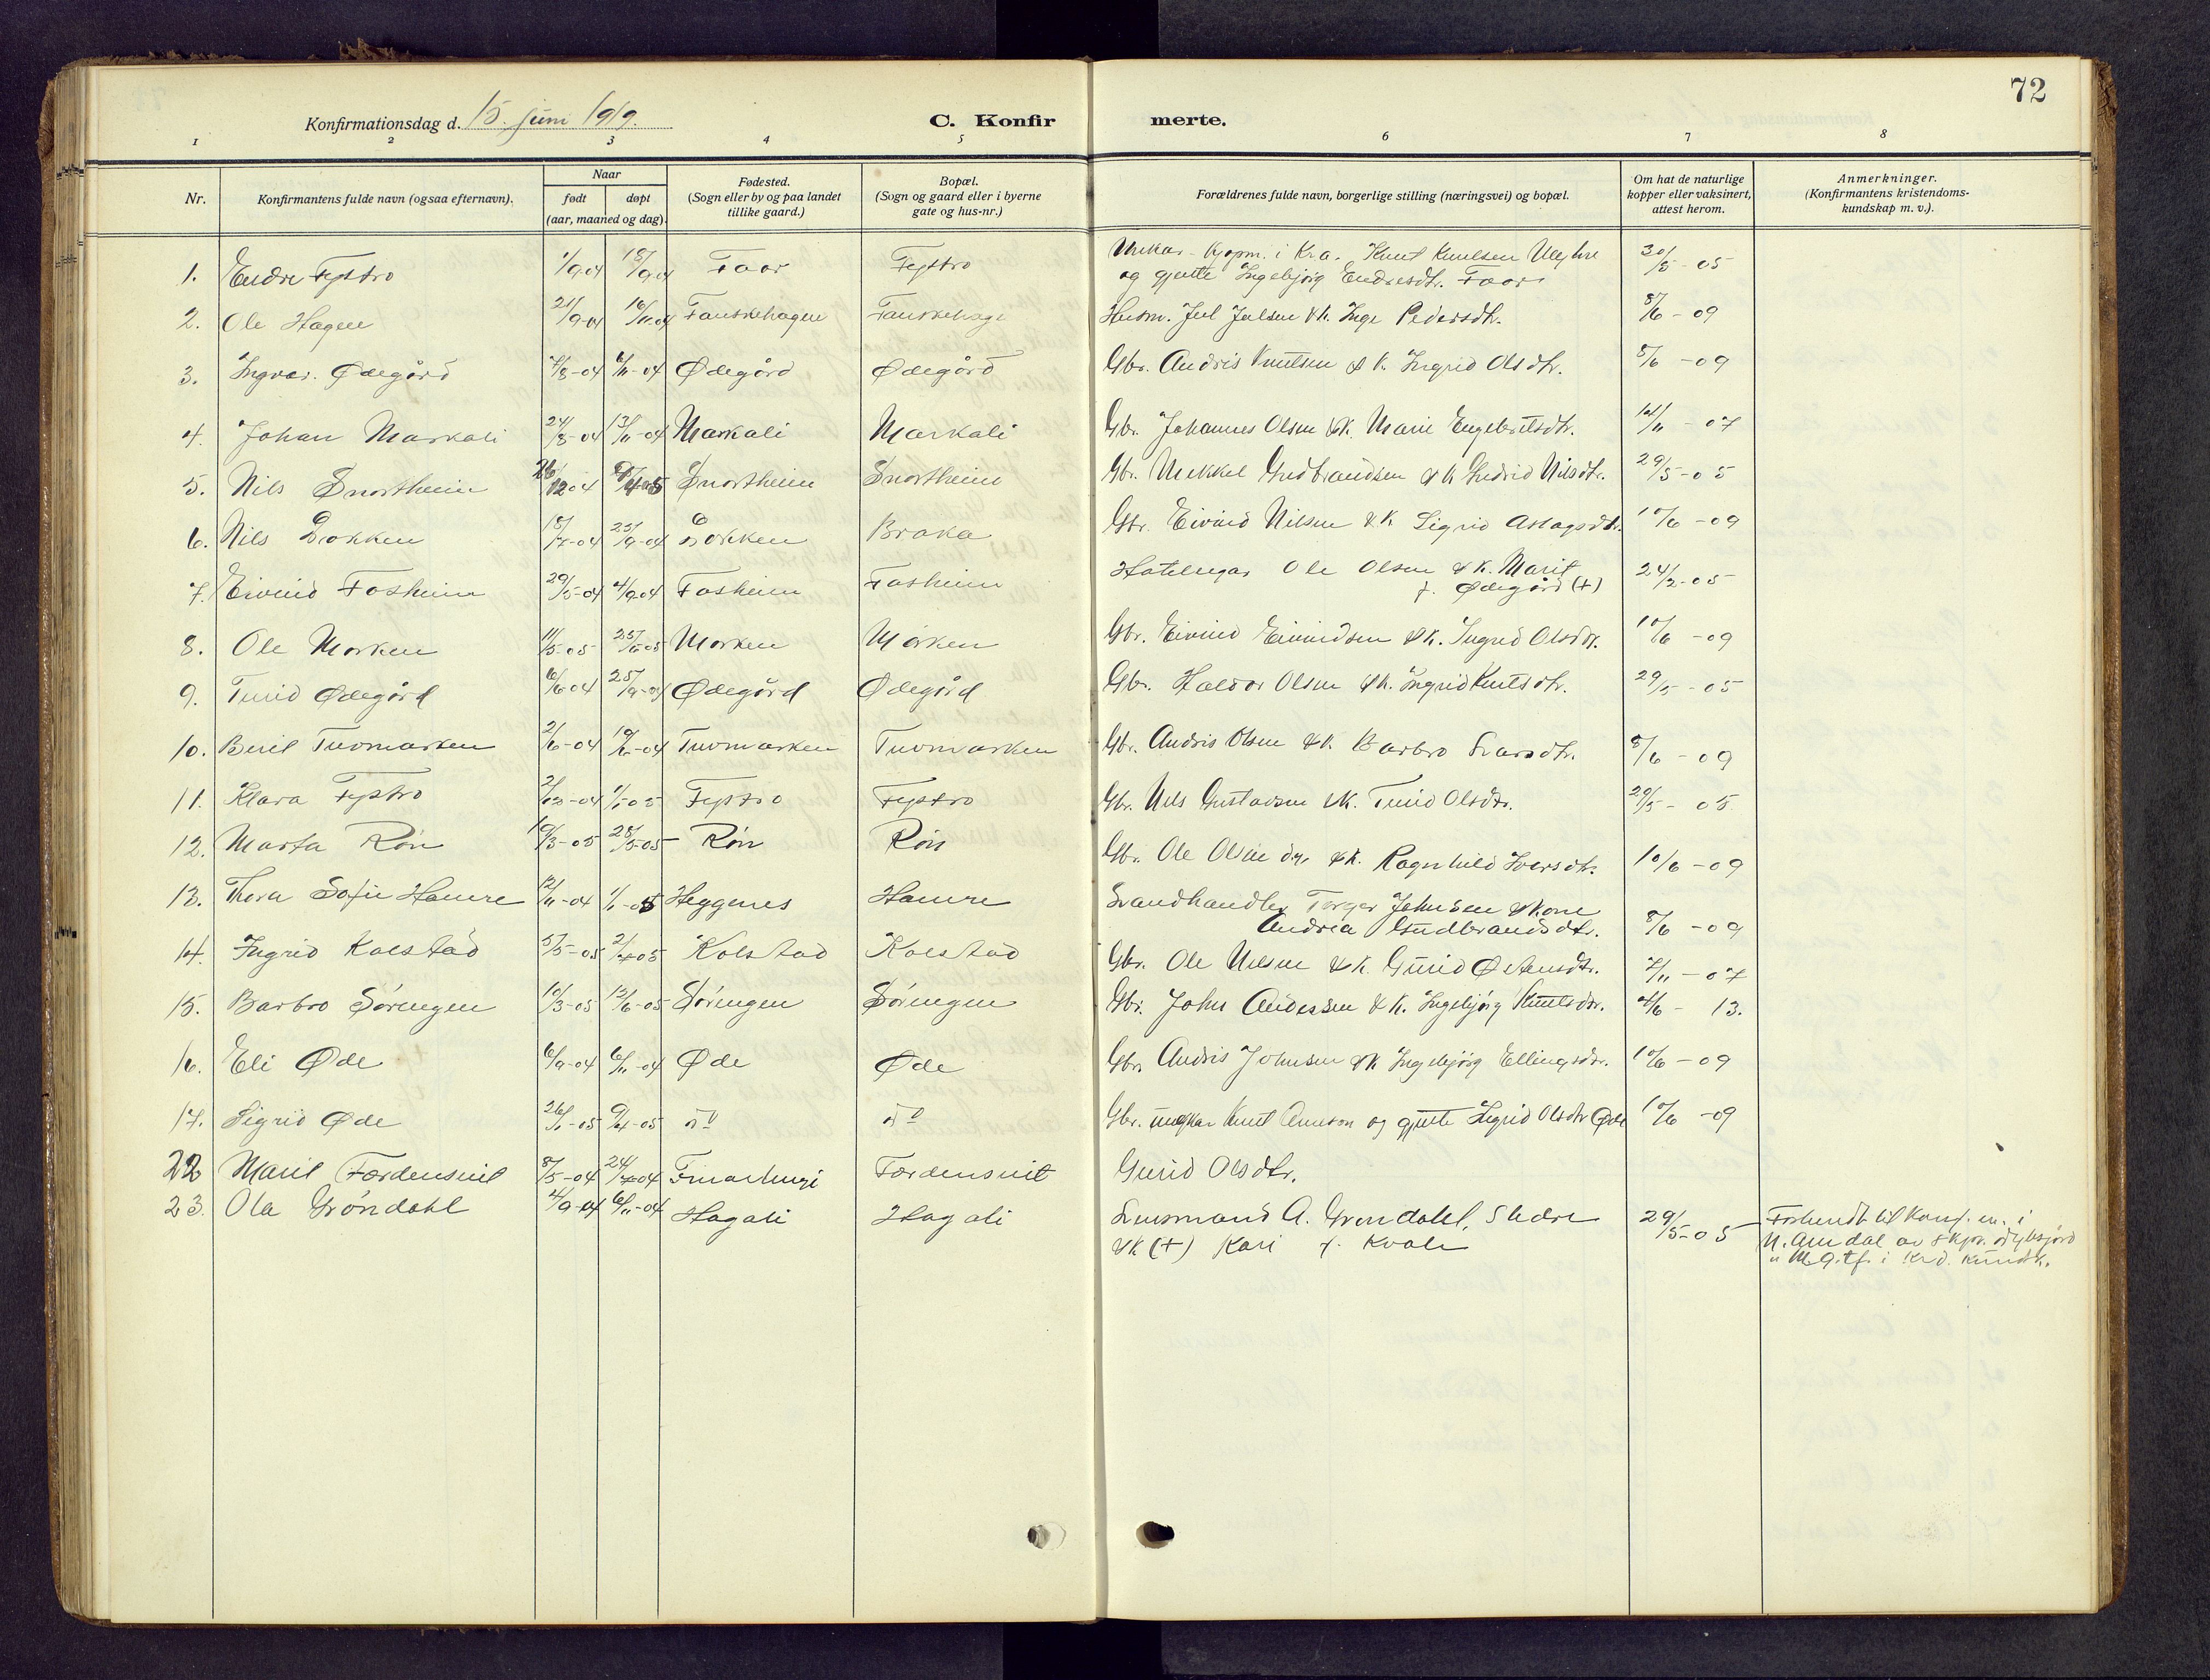 72
Konfirmationsdag d. 15. juni 1919.
C. Konfirmerte.
1 2 3 4 5 6 7 8
Nr.
Konfirmantens fulde navn (ogsaa efternavn).
Naar
født
døpt
(aar, maaned og dag).
Fødested.
(Sogn eller by og paa landet
tillike gaard.)
Bopæl.
(Sogn og gaard eller i byerne
gate og hus-nr.)
Forældrenes fulde navn, borgerlige stilling (næringsvei) og bopæl.
Om hat de naturlige
kopper eller vaksinert,
attest herom.
Anmerkninger.
(Konfirmantens kristendoms-
kundskap m. v.).
1. Endre Fystro 1/9 04 18/9 04 Faor Fystro Unkar. i Kra. Knut Knutsen
og gjente Ingebjörg Endresdtr. Faor 30/5 - 05
2. Ole Hagen 21/9-04 16/11 04 Fauskehagen Fauskehage Husm. Jul Julsen & k. Inge Pedersdtr. 8/6 - 09
3. Ingvar. Ødegård 7/8-04 6/11-04 Ødegård Ødegård Gbr. Andris Knutsen & k. Ingrid Olsdtr. 8/6 - 09
4. Johan Markali 24/8-04 13/11-04 Markali Markali Gbr. Johannes Olsen & k. Marie Engebretsdtr. 14/11 - 07
5. Nils Snortheim 26/12 04 Snortheim Snortheim Gbr. Mikkel Gudbrandsen & k Gudrid Nilsdtr. 29/5-05
6. Nils Lokken 18/7-04 25/9-04 Lokken Braka Gbr. Eivind Nilsen & k Sigrid Aslagsdtr. 10/6 - 09
7. Eivind Fosheim 29/5-04 4/9 04 Fosheim Fosheim Ole Olsen & k. Marit
f. Ødegård (+) 24/2-05
8. Ole Morken 11/5-05 25/6-05 Morken Morken Gbr. Eivind Eivindsen & k. Ingrid Olsdtr. 10/6 - 09
9. Turid Ødegård 6/6 04 25/9-04 Ødegård Ødegård Gbr. Haldor Olsen & k. Ingrid Knutsdtr. 29/5 - 05
10. Berit Tuvmarken 2/6-04 19/6-04 Tuvmarken Tuvmarken Gbr. Andris Olsen & k Barbro Ivarsdtr. 8/6 - 09
11. Klara Fystro 2/10-04 1/1-05 Fystro Fystro Gbr. Nils Gustavsen & k. Turid Olsdtr. 29/5 - 05
12. Marta Rön 19/3-05 28/5-05 Rön Rön Gbr. Ole Olsen & k. Ragnhild Iversdtr. 10/6 - 09
13. Thora Sofie Hamre 12/11-04 1/1-05 Heggenes Hamre Landhandler Torger Johnsen & kone
Andrea Gudbrandsdtr. 8/6 - 09
14. Ingrid Kolstad 5/3-05 2/4 05 Kolstad Kolstad Gbr. Ole Nilsen & k. Gurid Østensdtr. 7/11 - 07
15. Barbro Sörengen 10/3-05 13/6-05 Sörengen Sörengen Gbr. John Andersen & k. Ingebjörg Knutsdtr. 4/6 - 13.
16. Eli Øde 6/9-04 6/11-04 Øde Øde Gbr. Andris Johnsen & k Ingebjörg Ellingsdtr. 10/6 - 09
17. Sigrid Øde 26/1-05 9/4-05 do do Gbr. ungkar Knut Arneson og gjente Ingrid Olsdtr Øde 10/6 -09
22 Marit Fordensvit 8/5-04 24/7 04 Fordensvit Gurid Olsdtr.
23. Ola Gröndahl 4/9-04 6/11-04 Hagali Hagali Lensmand A. Gröndahl, Slidre
& k (+) Kari f. Kvale 29/5-05 til konf. i